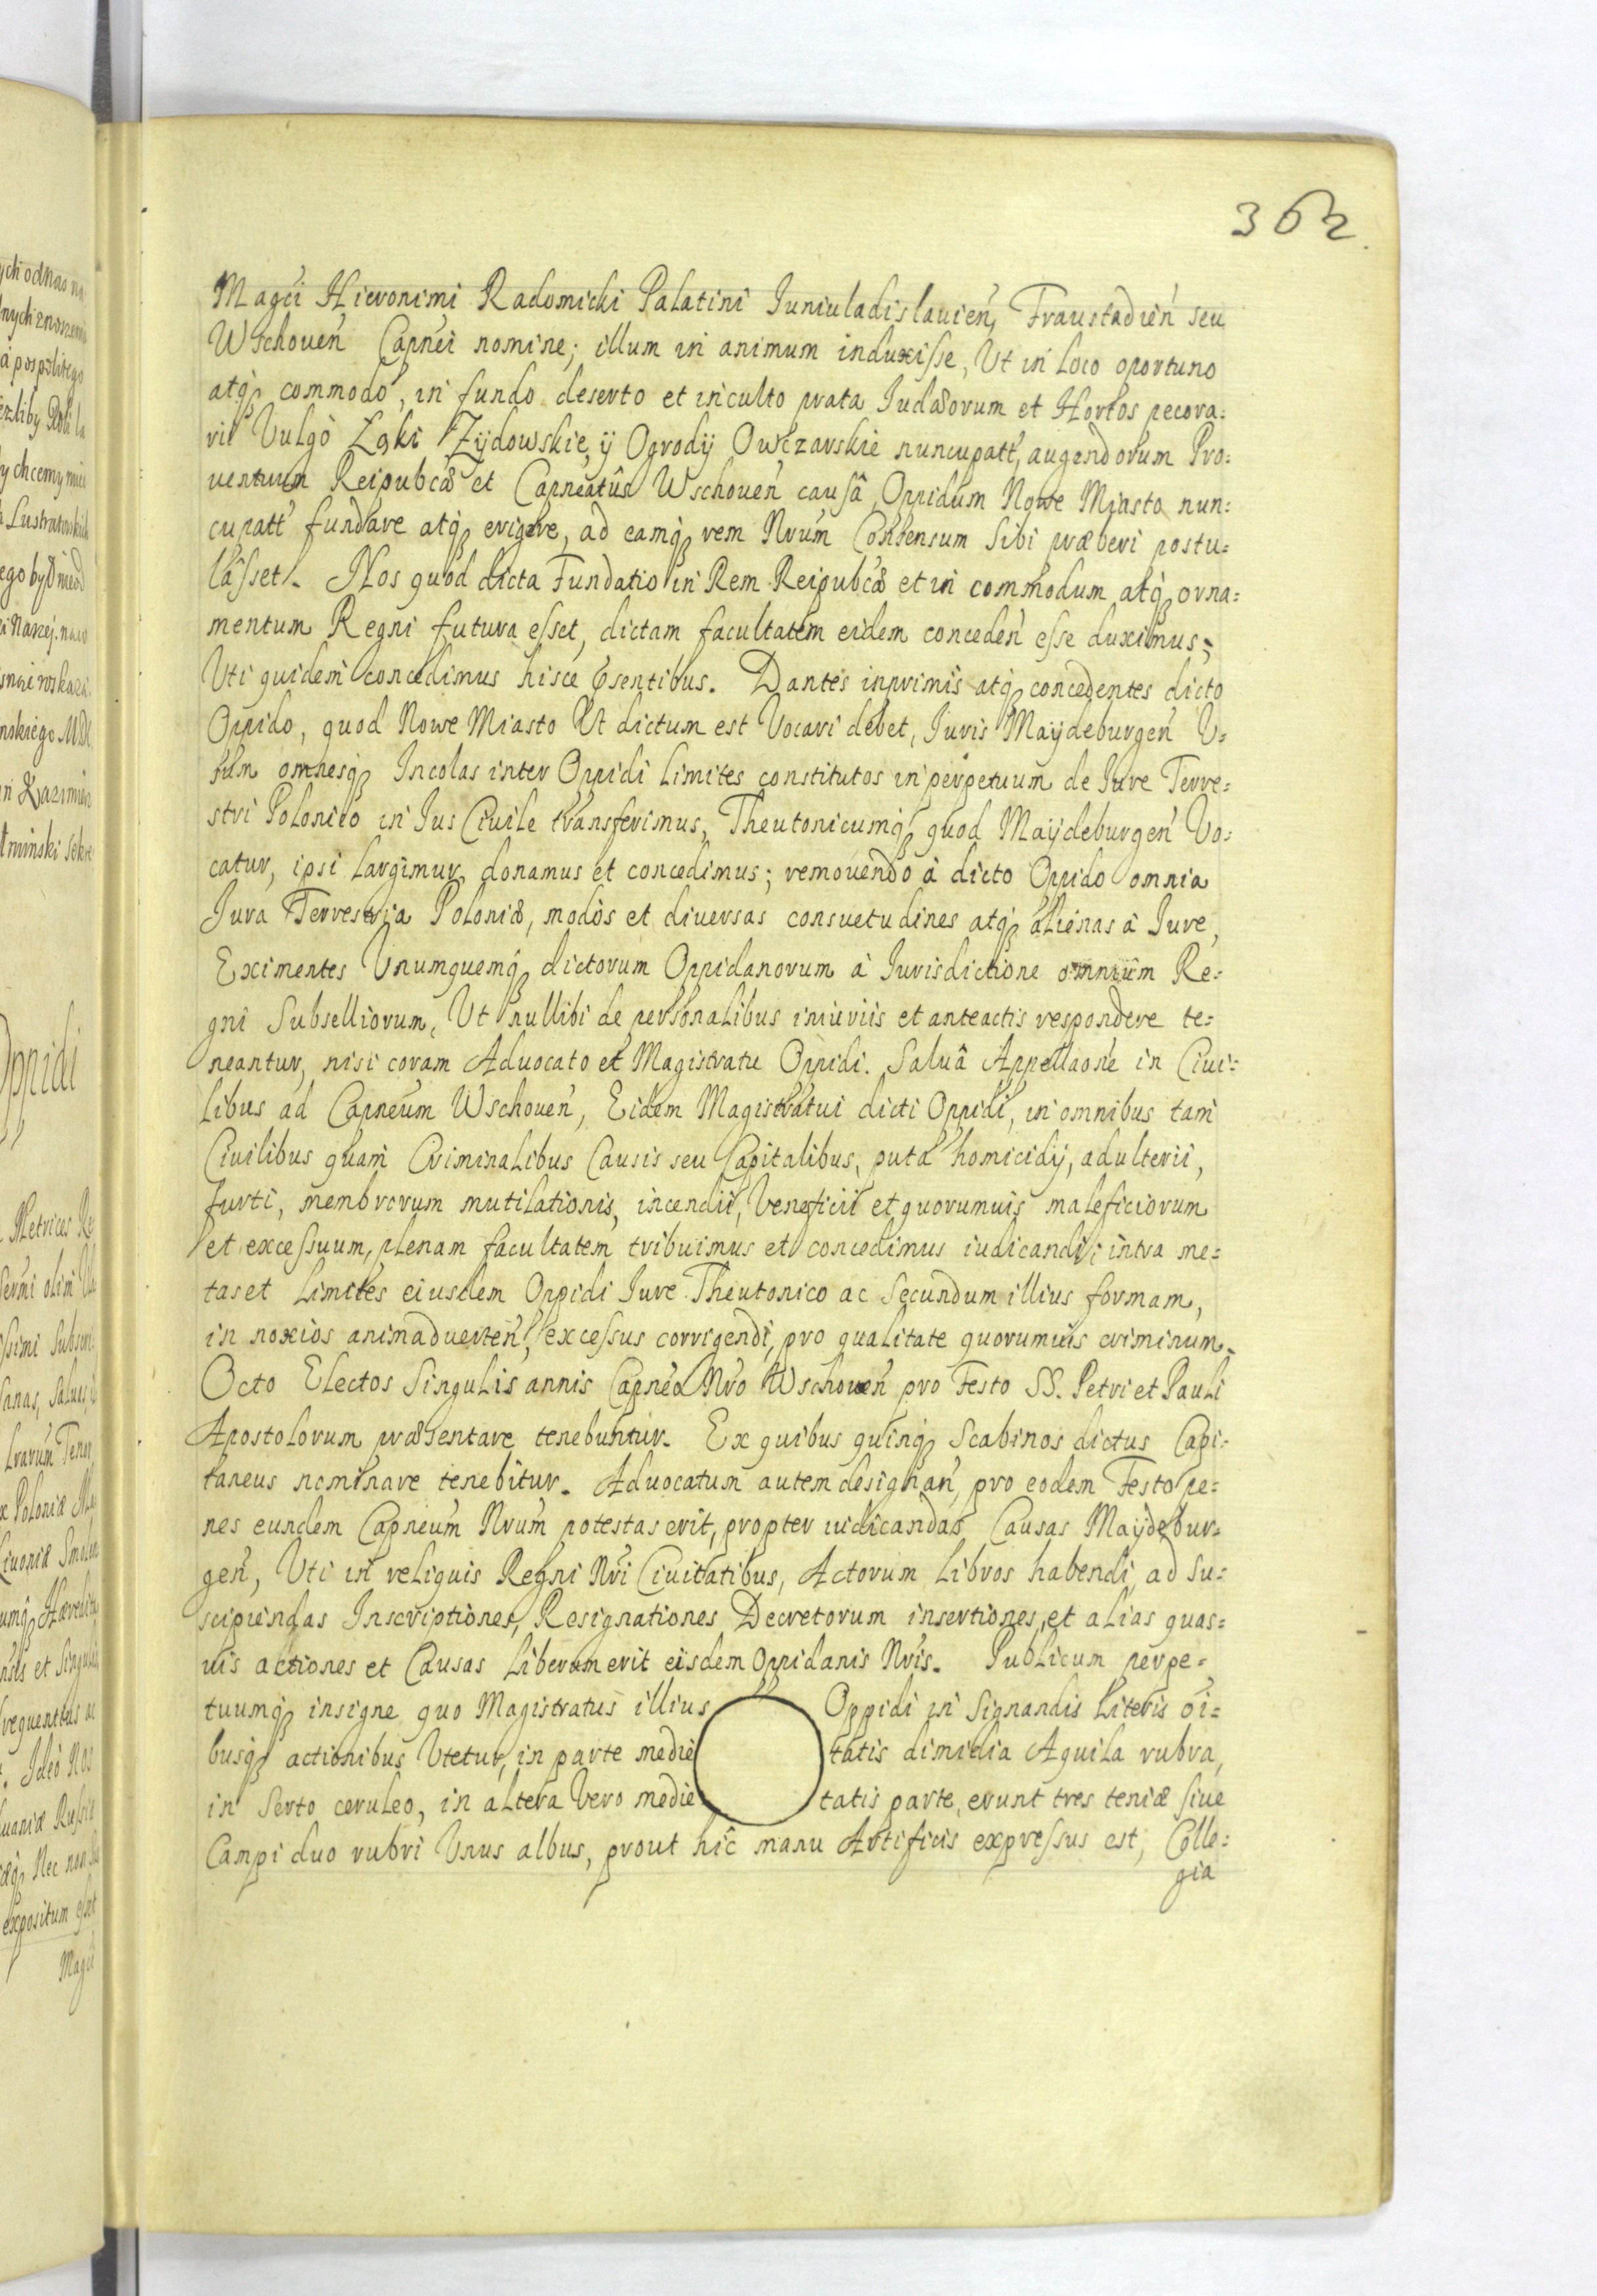 362
Magci Hieronimi Radomicki Palatini Iuniuladislauień, Fraustadień seu
Wschoueń Capnei nomine; illum in animum induxisse, Ut in loco oportuno
atq, commodo, in fundo deserto et inculto prata Iudæorum et Hortos pecora=
rii Vulgò Łąki Zydowskie, ÿ Ogrody Owczarskie nuncupatt, augendorum Pro=
uentuum Reipubcæ et Capneatûs Wschoueń causâ, Oppidum Nowe Miasto nun=
cupatt fundare atq, erigere, ad eamq, rem Nrum Consensum Sibi præberi postu=
lasset. Nos quod dicta Fundatio in Rem Reipubcæ et in commodum atq, orna=
mentum Regni futura esset, dictam facultatem eidem concedeń esse duximus,
Uti quidem concedimus hisce pśentibus. Dantes inprimis atq, concedentes dicto
Oppido, quod Nowe Miasto Ut dictum est Vocari debet, Iuris Maÿdeburgeń U=
sum omnesq, Incolas inter Oppidi Limites constitutos in perpetuum de Iure Terre=
stri Polonico in Ius Ciuile transferimus, Theutonicumq, quod Maÿdeburgeń Vo=
catur, ipsi largimur, donamus et concedimus; remouendo à dicto Oppido omnia
Iura Terrestria Poloniæ, modòs et diuersas consuetudines atq, alienas à Iure,
Eximentes Vnumquemq, dictorum Oppidanorum à Iurisdictione omnium Re=
gni Subselliorum, Ut nullibi de personalibus iniuriis et anteactis respondere te=
neantur, nisi coram Aduocato et Magistratu Oppidi. Saluâ Appellaone in Ciui=
libus ad Capneum Wschoueń, Eidem Magistratui dicti Oppidi, in omnibus tam
Ciuilibus quam Criminalibus Causis seu Capitalibus, puta homicidÿ, adulterii,
furti, membrorum mutilationis, incendii, Veneficii et quorumuis maleficiorum
et excessuum, plenam facultatem tribuimus et concedimus iudicandi; intra me=
tas et Limites eiusdem Oppidi Iure Theutonico ac Secundum illius formam,
in noxios animaduerteń, excessus corrigendi, pro qualitate quorumuis criminum.
Octo Electos Singulis annis Capneo Nro Wschoueń pro Festo SS. Petri et Pauli
Apostolorum præsentare tenebuntur. Ex quibus quinq, Scabinos dictus Capi=
taneus nominare tenebitur. Aduocatum autem designań, pro eodem Festo pe=
nes eundem Capneum Nrum potestas erit, propter iudicandas Causas Maÿdebur=
geń, Uti in reliquis Regni Nri Ciuitatibus, Actorum Libros habendi, ad Su=
scipiendas Inscriptiones, Resignationes Decretorum insertiones, et alias quas=
uis actiones et Causas Liberum erit eisdem Oppidanis Nris. Publicum perpe=
tuumq, insigne quo Magistratus illius Oppidi in Signandis Literis oi=
busq, actionibus Utetur, in parte medie tatis dimidia Aquila rubra,
in Serto ceruleo, in altera Vero medie tatis parte, erunt tres teniæ siue
Campi duo rubri Unus albus, prout hîc manu Artificis expressus est, Colle=
gia